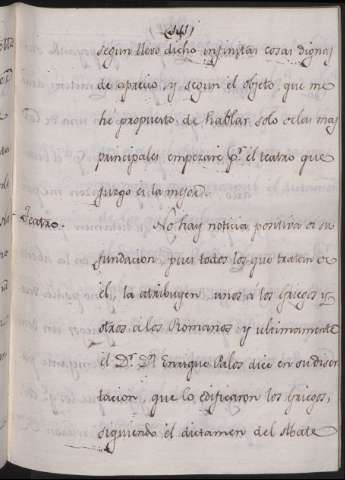 (141)
segun llevo dicho infinitas cosas dignas
de aprecio, y segun el objeto que me
he propuesto de hablar solo de las mas
principales empezaré pr. el teatro que
juzgo es la mejor.
Teatro.
No hay noticia positiva de su
fundacion pues todos los que tratan de
él, la atribuyen unos á los Griegos y
otros á los Romanos; y ultimamente
el Dr. Dn. Enrique Palos dice en su diser
tacion que lo edificaron los Griegos,
siguiendo el dictamen del Abate